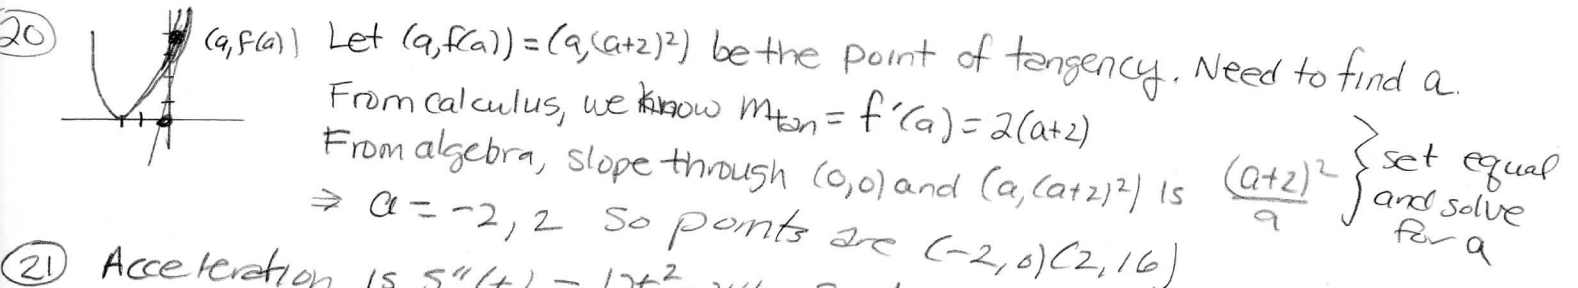 20 (a, f(a)) Let (a, f(a)) = (a, (a+2)²) be the point of tangency. Need to find a.
From calculus, we know m_tan = f'(a) = 2(a+2)
From algebra, slope through (0,0) and (a, (a+2)²) is (a+2)²/a } set equal and solve for a
⇒ a = -2, 2 So points are (-2, 0) (2, 16)
21 Acceleration is s''(t) = 12t²